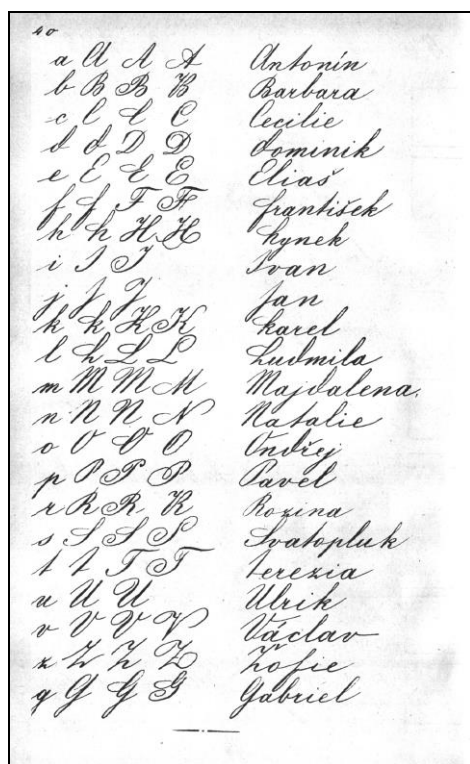 40
a A A A Antonín
b B B B Barbara
c C C C Cecilie
d D D D Dominik
e E E E Eliaš
f F F F František
h H H H Hynek
i I I Ivan
j J J Jan
k K K K Karel
l L L L Ludmila
m M M M Majdalena.
n N N N Natalie
o O O O Ondřej
p P P P Pavel
r R R R Rozina
s S S S Svatopluk
t T T T Terezia
u U U Ulrik
v V V V Václav
z Z Z Z Žofie
g G G G Gabriel